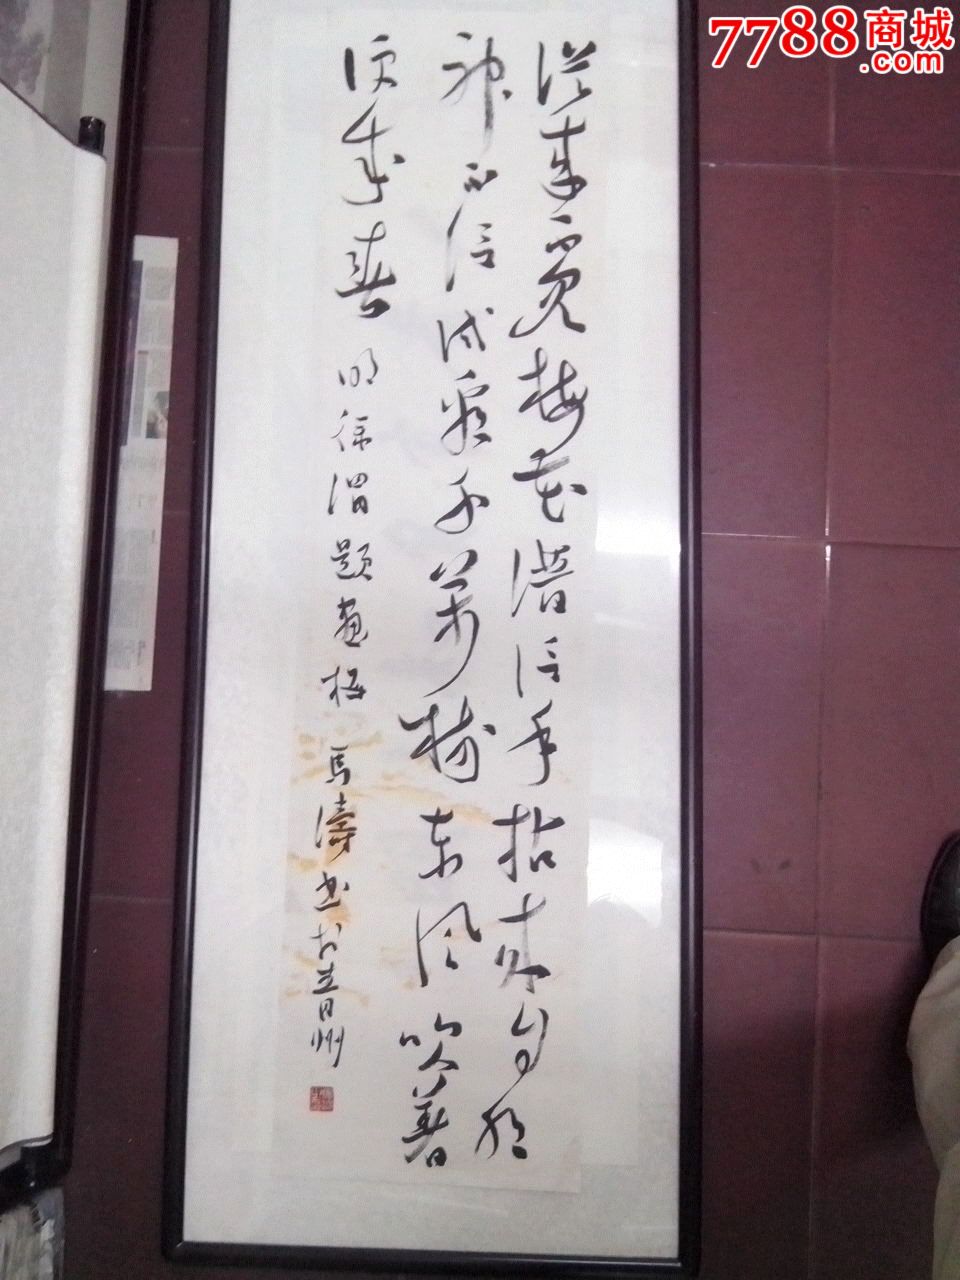 7788商城
.com
从来不见梅花谱信手拈来自
神不信试看千万树东风吹著
便成春 明徐渭题画梅 马濤书于青州